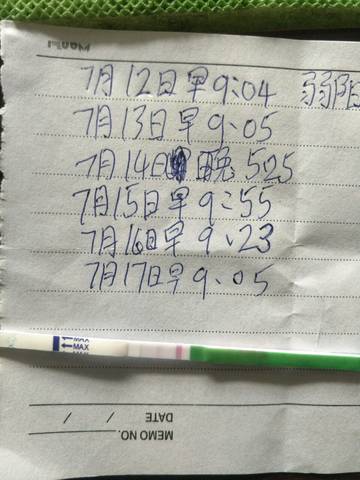 7月12日早9:04 弱阳
7月13日早9、05
7月14日晚525
7月15日早9:55
7月16日早9、23
7月17日早9、05
MAX
MAX
MAX
MEMO NO.
DATE / /